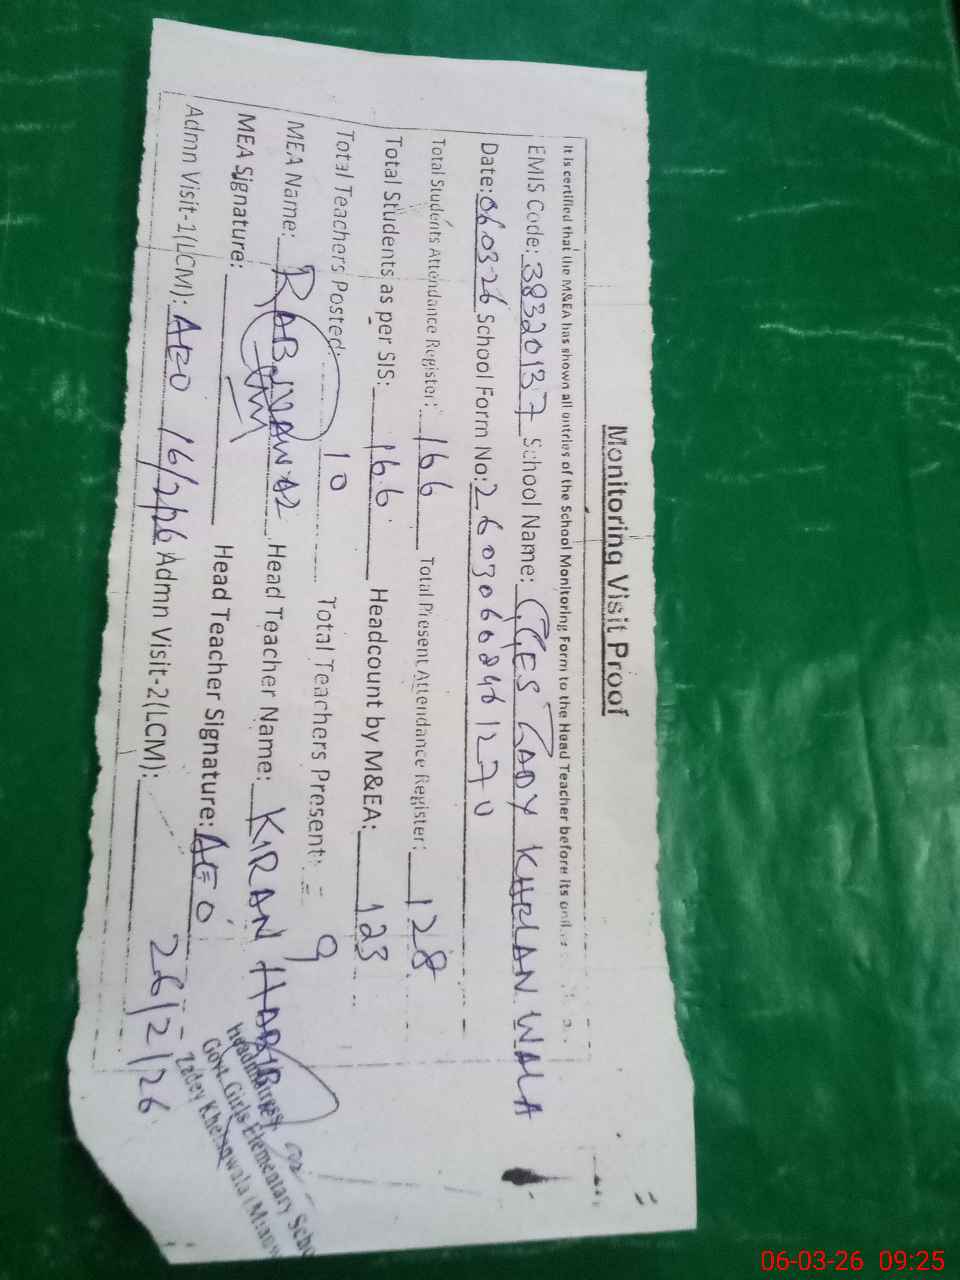 Monitoring Visit Proof
It is certified that the M&EA has shown all entries of the School Monitoring Form to the Head Teacher before its
EMIS Code: 38320137 School Name: GGES ZADY KHELAN WALA
Date: 060326 School Form No: 26030608461270
Total Students Attendance Register: 166 Total Present Attendance Register: 128
Total Students as per SIS: 166 Headcount by M&EA: 123
Total Teachers Posted: 10 Total Teachers Present: 9
MEA Name: RAB NAWAZ Head Teacher Name: KIRAN HABIB
MEA Signature: Head Teacher Signature:
Admn Visit-1(LCM): AEO 16/2/26 Admn Visit-2(LCM): AEO 26/2/26
Headmistress
Govt. Girls Elementary
Zadey Khelanwala
06-03-26 09:25